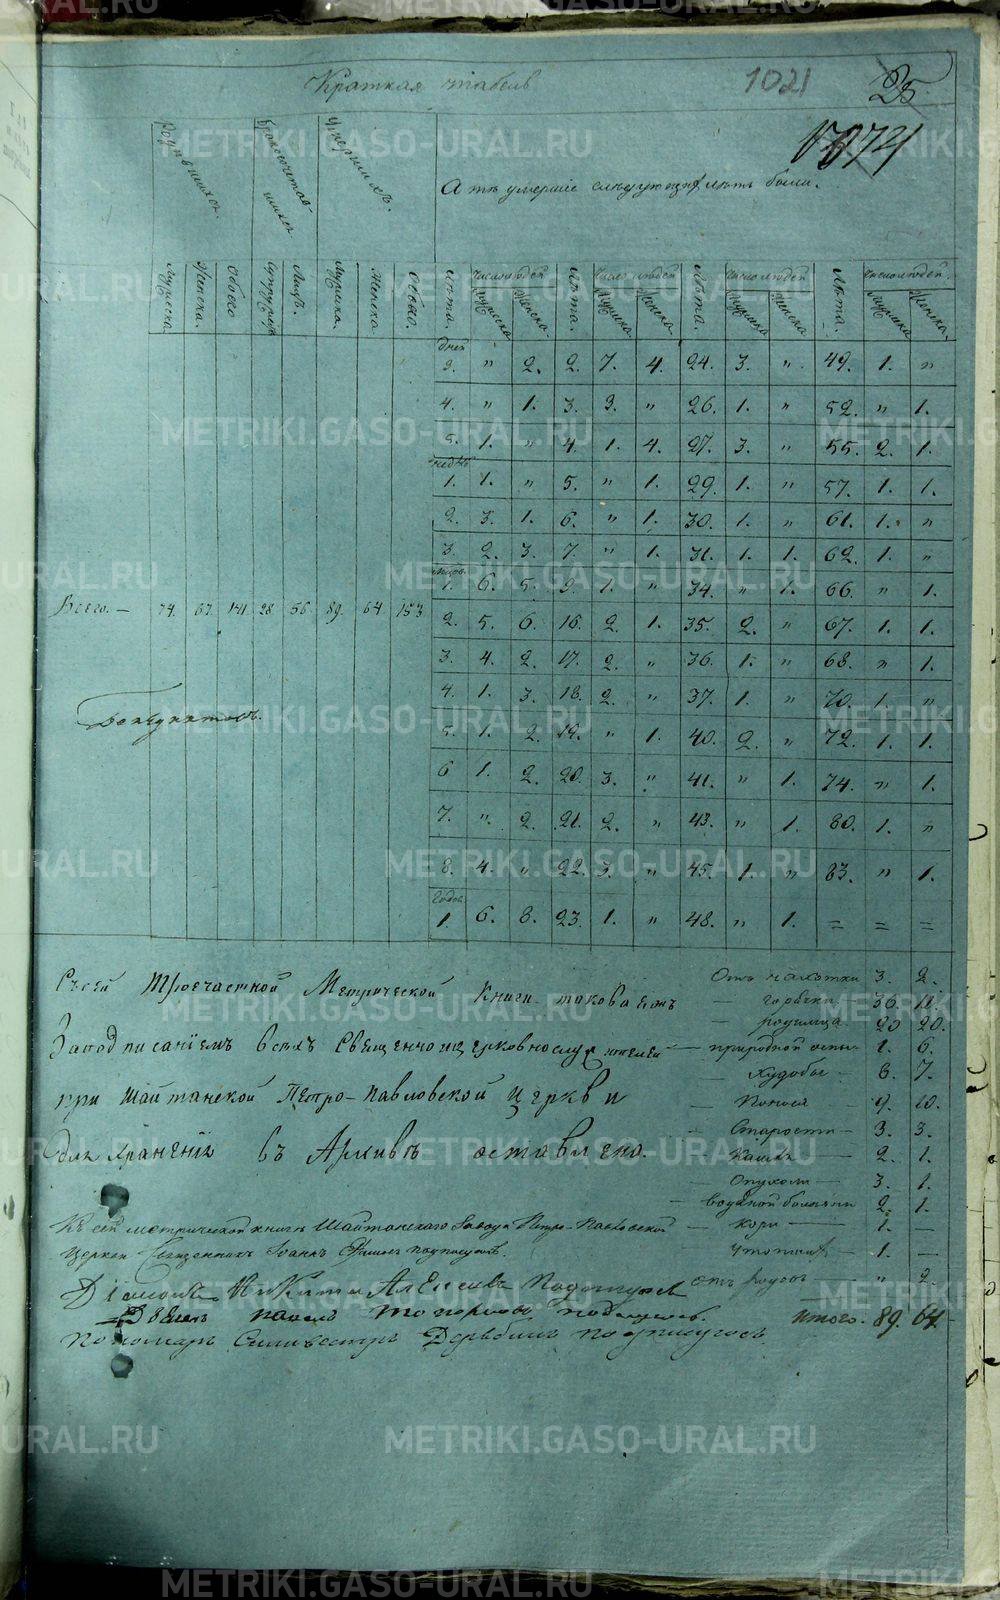 Краткая табель
1021
25
А тѣ умершіе слѣдующихъ лѣтъ были.
Родившихся.
Бракосочетав-
шихся
Умершихъ.
Мужеска. Женска. Обоего Супружествъ Лицъ. Мужеска. Женска. Обоего.
Лѣта. Число людей Мужеска Женска. Лѣта. Число людей Мужеска Женска. Лѣта. Число людей Мужеска Женска Лѣта. Число людей. Мужеска Женска.
дней
3. " 2. 2. 7. 4. 24. 3. " 49. 1. "
4. " 1. 3. 3. " 26. 1. " 52. " 1.
5. 1. " 4. 1. 4. 27. 3. " 55. 2. 1.
недѣль
1. 1. " 5. " 1. 29. 1. " 57. 1. 1.
2. 3. 1. 6. " 1. 30. 1. " 61. 1. "
3. 2. 3. 7. " 1. 31. 1. 1. 62. 1. "
мѣсяцов.
1. 6. 5. 9. 1. " 34. " 1. 66. " 1.
Всего. — 74. 67. 141. 28. 56. 89. 64. 153.
2. 5. 6. 16. 2. 1. 35. 2. " 67. 1. 1.
3. 4. 2. 17. 2. " 36. 1. " 68. " 1.
4. 1. 3. 18. 2. " 37. 1. " 70. 1. "
5. 1. 2. 19. " 1. 40. 2. " 72. 1. 1.
6 1. 2. 20. 3. " 41. " 1. 74. " 1.
7. " 2. 21. 2. " 43. " 1. 80. 1. "
8. 4. " 22. 3. " 45. 1. " 83. " 1.
Годов.
1. 6. 8. 23. 1. " 48. " 1. = = =
Съ сей Троечастной Метрической Книги такова жъ
За подписаніемъ всѣхъ Священно и церковнослужителей
при Шайтанской Петро-Павловской Церкви
для храненія въ Архивѣ оставлена.
Отъ чахотки 3. 2.
— горячки. 36. 11.
— родимца. 20 20.
— природной оспы 1. 6.
— Худобы — 6. 7.
— Поноса — 9. 10.
— Старости — 3. 3.
— Кашля — 2. 1.
— Опухоли — 3. 1.
— водяной болѣзни 2. 1.
— кори — 1. —
утонул — 1. —
отъ родовъ " 2.
итого. 89. 64.
Къ сей метрической книгѣ Шайтанскаго Завода Петро-Павловской
Церкви Священникъ Іоаннъ подписался
Діаконъ Никита Алексѣевъ Подписался
Дьячекъ Павелъ Топорковъ подписался.
Пономарь Силивестръ подписуюсь
METRIKI.GASO-URAL.RU